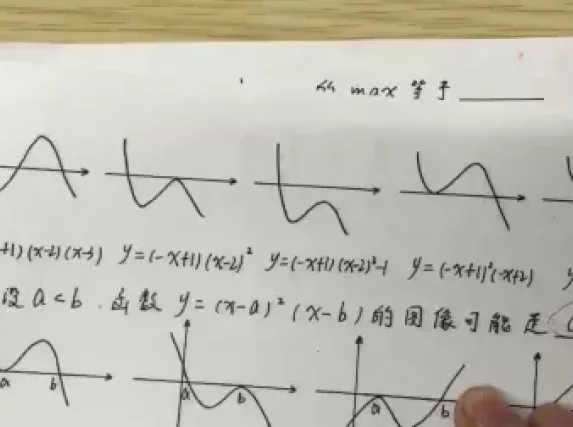 的 max 等于
+1)(x-2)(x-3) y=(-x+1)(x-2)² y=(-x+1)(x-2)²-1 y=(-x+1)²(-x+2) y
设 a<b. 函数 y=(x-a)²(x-b) 的图像可能是
a b a b a b